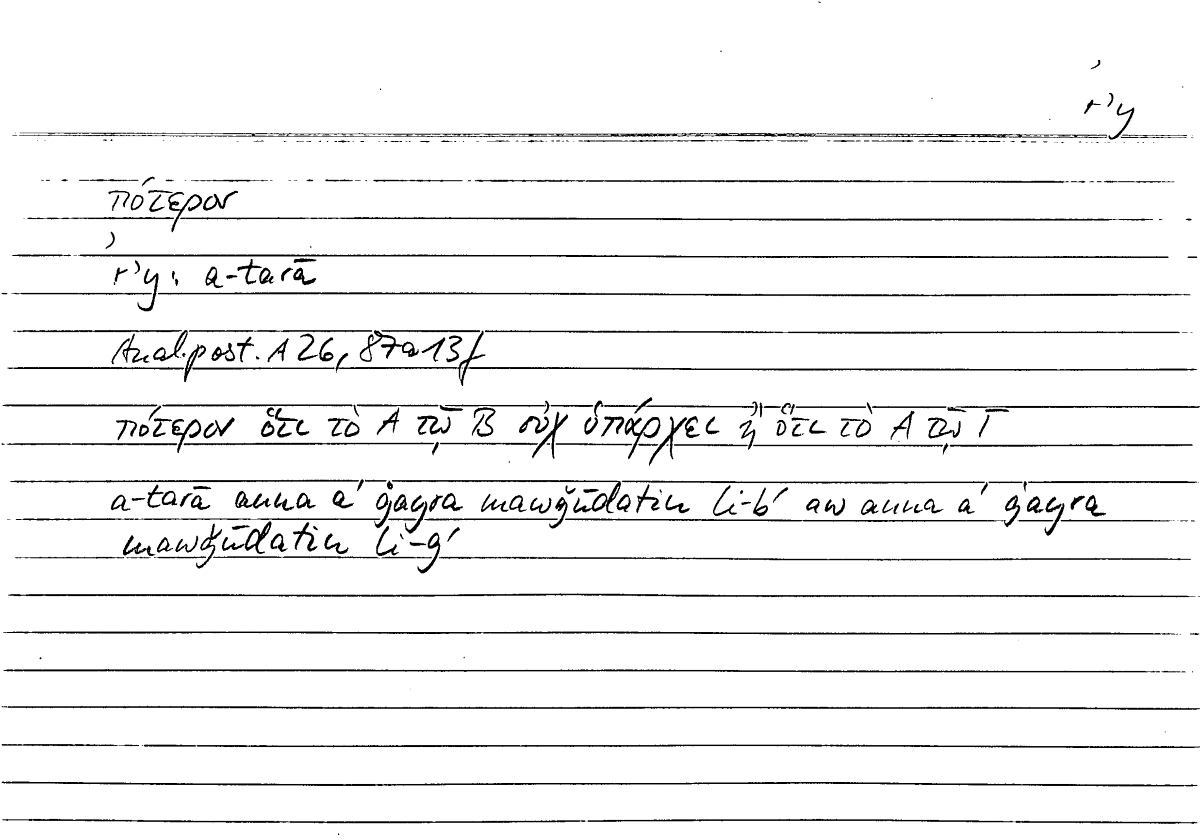 ʾ
rʾy
πότερον
ʾ
rʾy: a-tarā
Anal.post. A 26, 87a13f
πότερον ὅτι τὸ A τῷ B οὐχ ὑπάρχει ἢ ὅτι τὸ A τῷ Γ
a-tarā anna a' ġayra mawǧūdatin li-b' aw anna a' ġayra
mawǧūdatin li-ǧ'